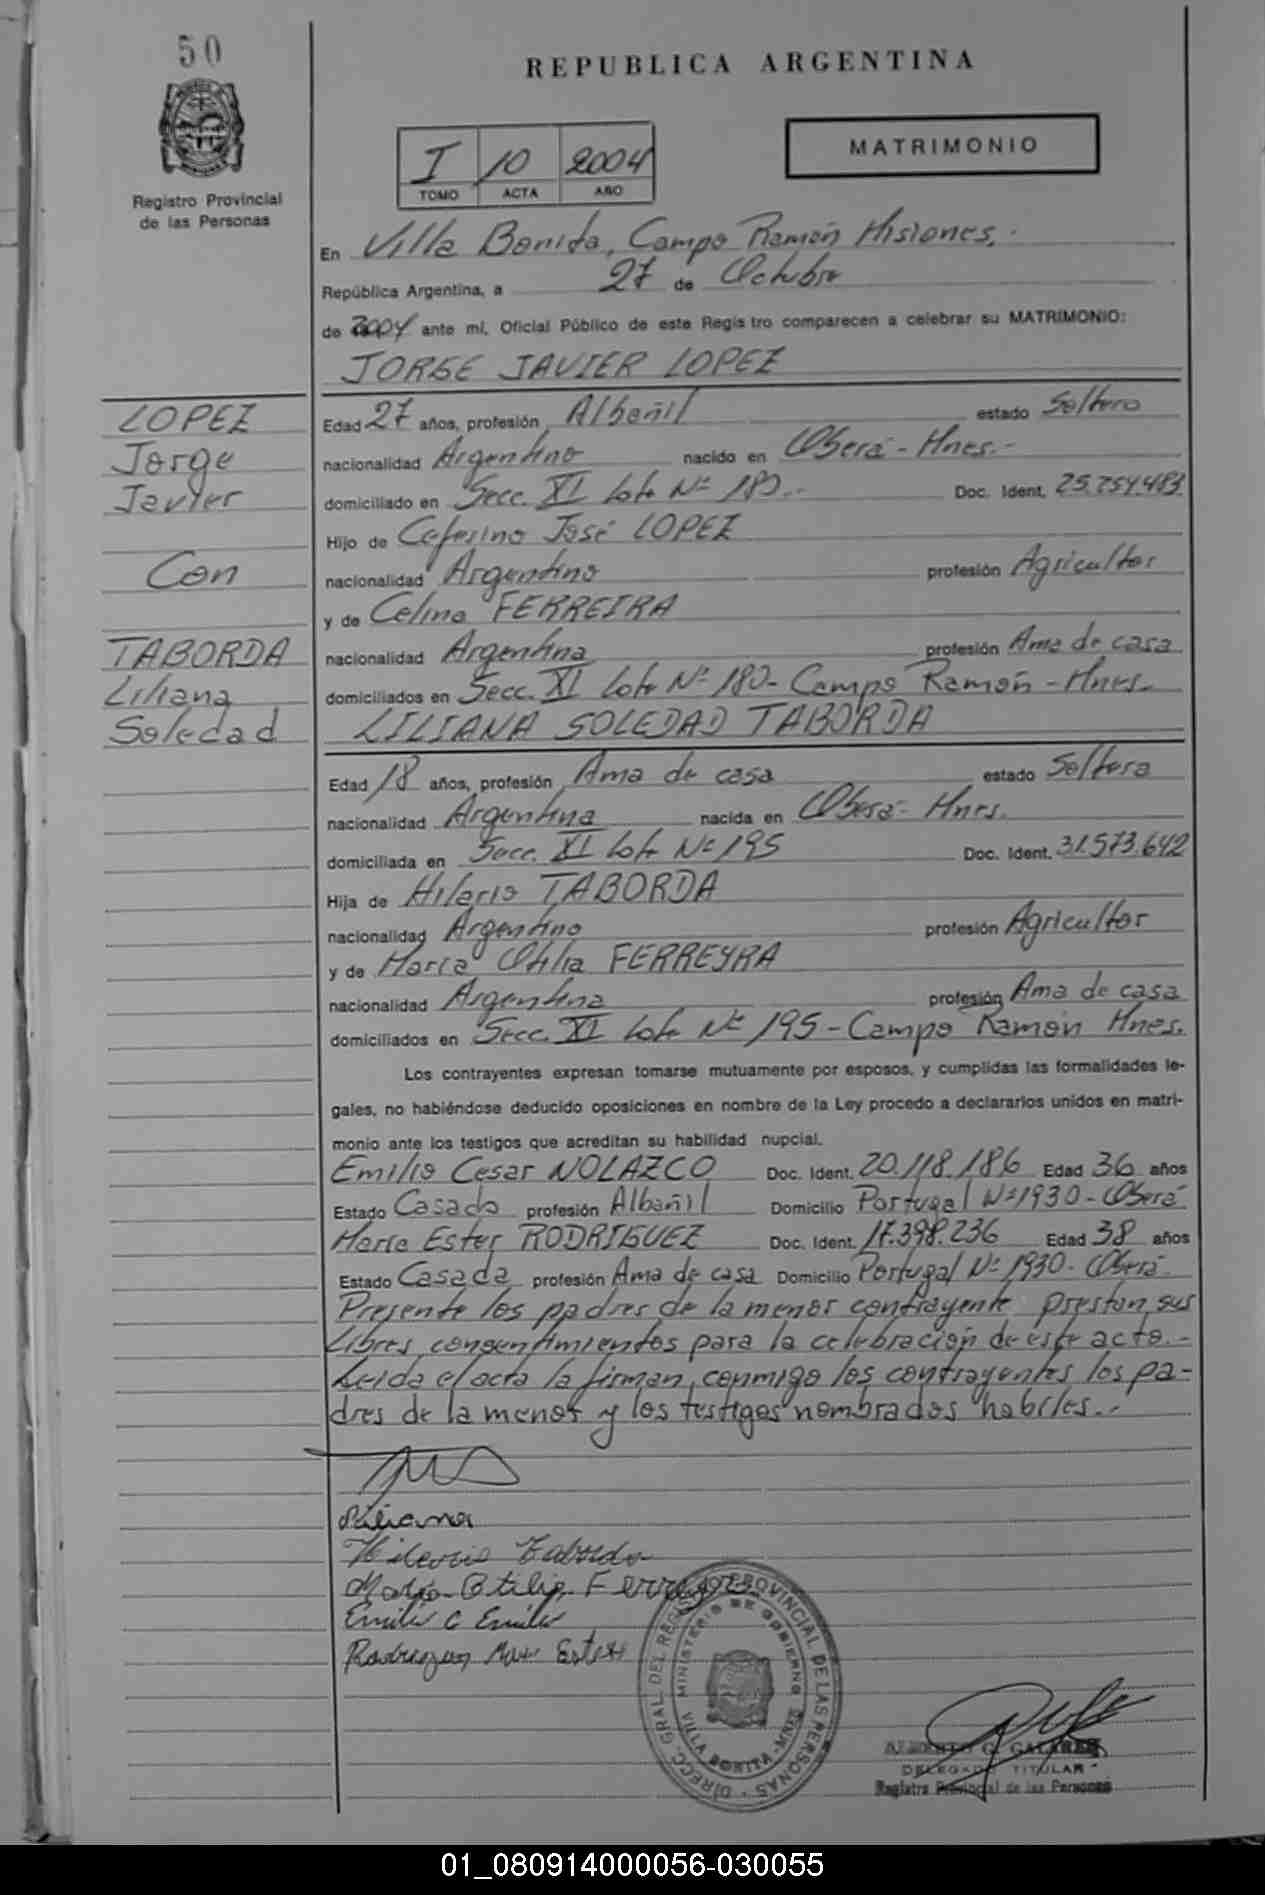 50
REPUBLICA ARGENTINA
I 10 2004
TOMO ACTA AÑO
MATRIMONIO
Registro Provincial
de las Personas
En Villa Bonita, Campo Ramón Misiones.
República Argentina, a 27 de Octubre
de 2004 ante mí, Oficial Público de este Registro comparecen a celebrar su MATRIMONIO:
JORGE JAVIER LOPEZ
LOPEZ
Jorge
Javier
Con
TABORDA
Liliana
Soledad
Edad 27 años, profesión Albañil estado Soltero
nacionalidad Argentino nacido en Oberá - Mnes.-
domiciliado en Secc. XI Lote Nº 180.- Doc. Ident. 25.254.483
Hijo de Ceferino José LOPEZ
nacionalidad Argentino profesión Agricultor
y de Celina FERREIRA
nacionalidad Argentina profesión Ama de casa
domiciliados en Secc. XI Lote Nº 180- Campo Ramón - Mnes.
LILIANA SOLEDAD TABORDA
Edad 18 años, profesión Ama de casa estado Soltera
nacionalidad Argentina nacida en Oberá- Mnes.
domiciliada en Secc. XI Lote Nº 195 Doc. Ident. 31.573.642
Hija de Hilario TABORDA
nacionalidad Argentino profesión Agricultor
y de María Otilia FERREYRA
nacionalidad Argentina profesión Ama de casa
domiciliados en Secc. XI Lote Nº 195 - Campo Ramón Mnes.
Los contrayentes expresan tomarse mutuamente por esposos, y cumplidas las formalidades le-
gales, no habiéndose deducido oposiciones en nombre de la Ley procedo a declararlos unidos en matri-
monio ante los testigos que acreditan su habilidad nupcial.
Emilio Cesar NOLAZCO Doc. Ident. 20.118.186 Edad 36 años
Estado Casado profesión Albañil Domicilio Portugal Nº 1930 - Oberá
María Ester RODRIGUEZ Doc. Ident. 17.398.236 Edad 38 años
Estado Casada profesión Ama de casa Domicilio Portugal Nº 1930- Oberá-
Presente los padres de la menor contrayente prestan sus
libres consentimientos para la celebración de este acto.-
Leída el acta la firman conmigo los contrayentes los pa-
dres de la menor y los testigos nombrados habiles.-
Liliana
Hilario Taborda
María Otilia Ferreyra
Emilio C Emilio
Rodriguez Mari Ester
DIREC. GRAL. DEL REGISTRO PROVINCIAL DE LAS PERSONAS -
MINISTERIO DE GOBIERNO
VILLA BONITA - MNES
ALBERTO C. GALARZA
DELEGADO TITULAR
Registro Provincial de las Personas
01_080914000056-030055